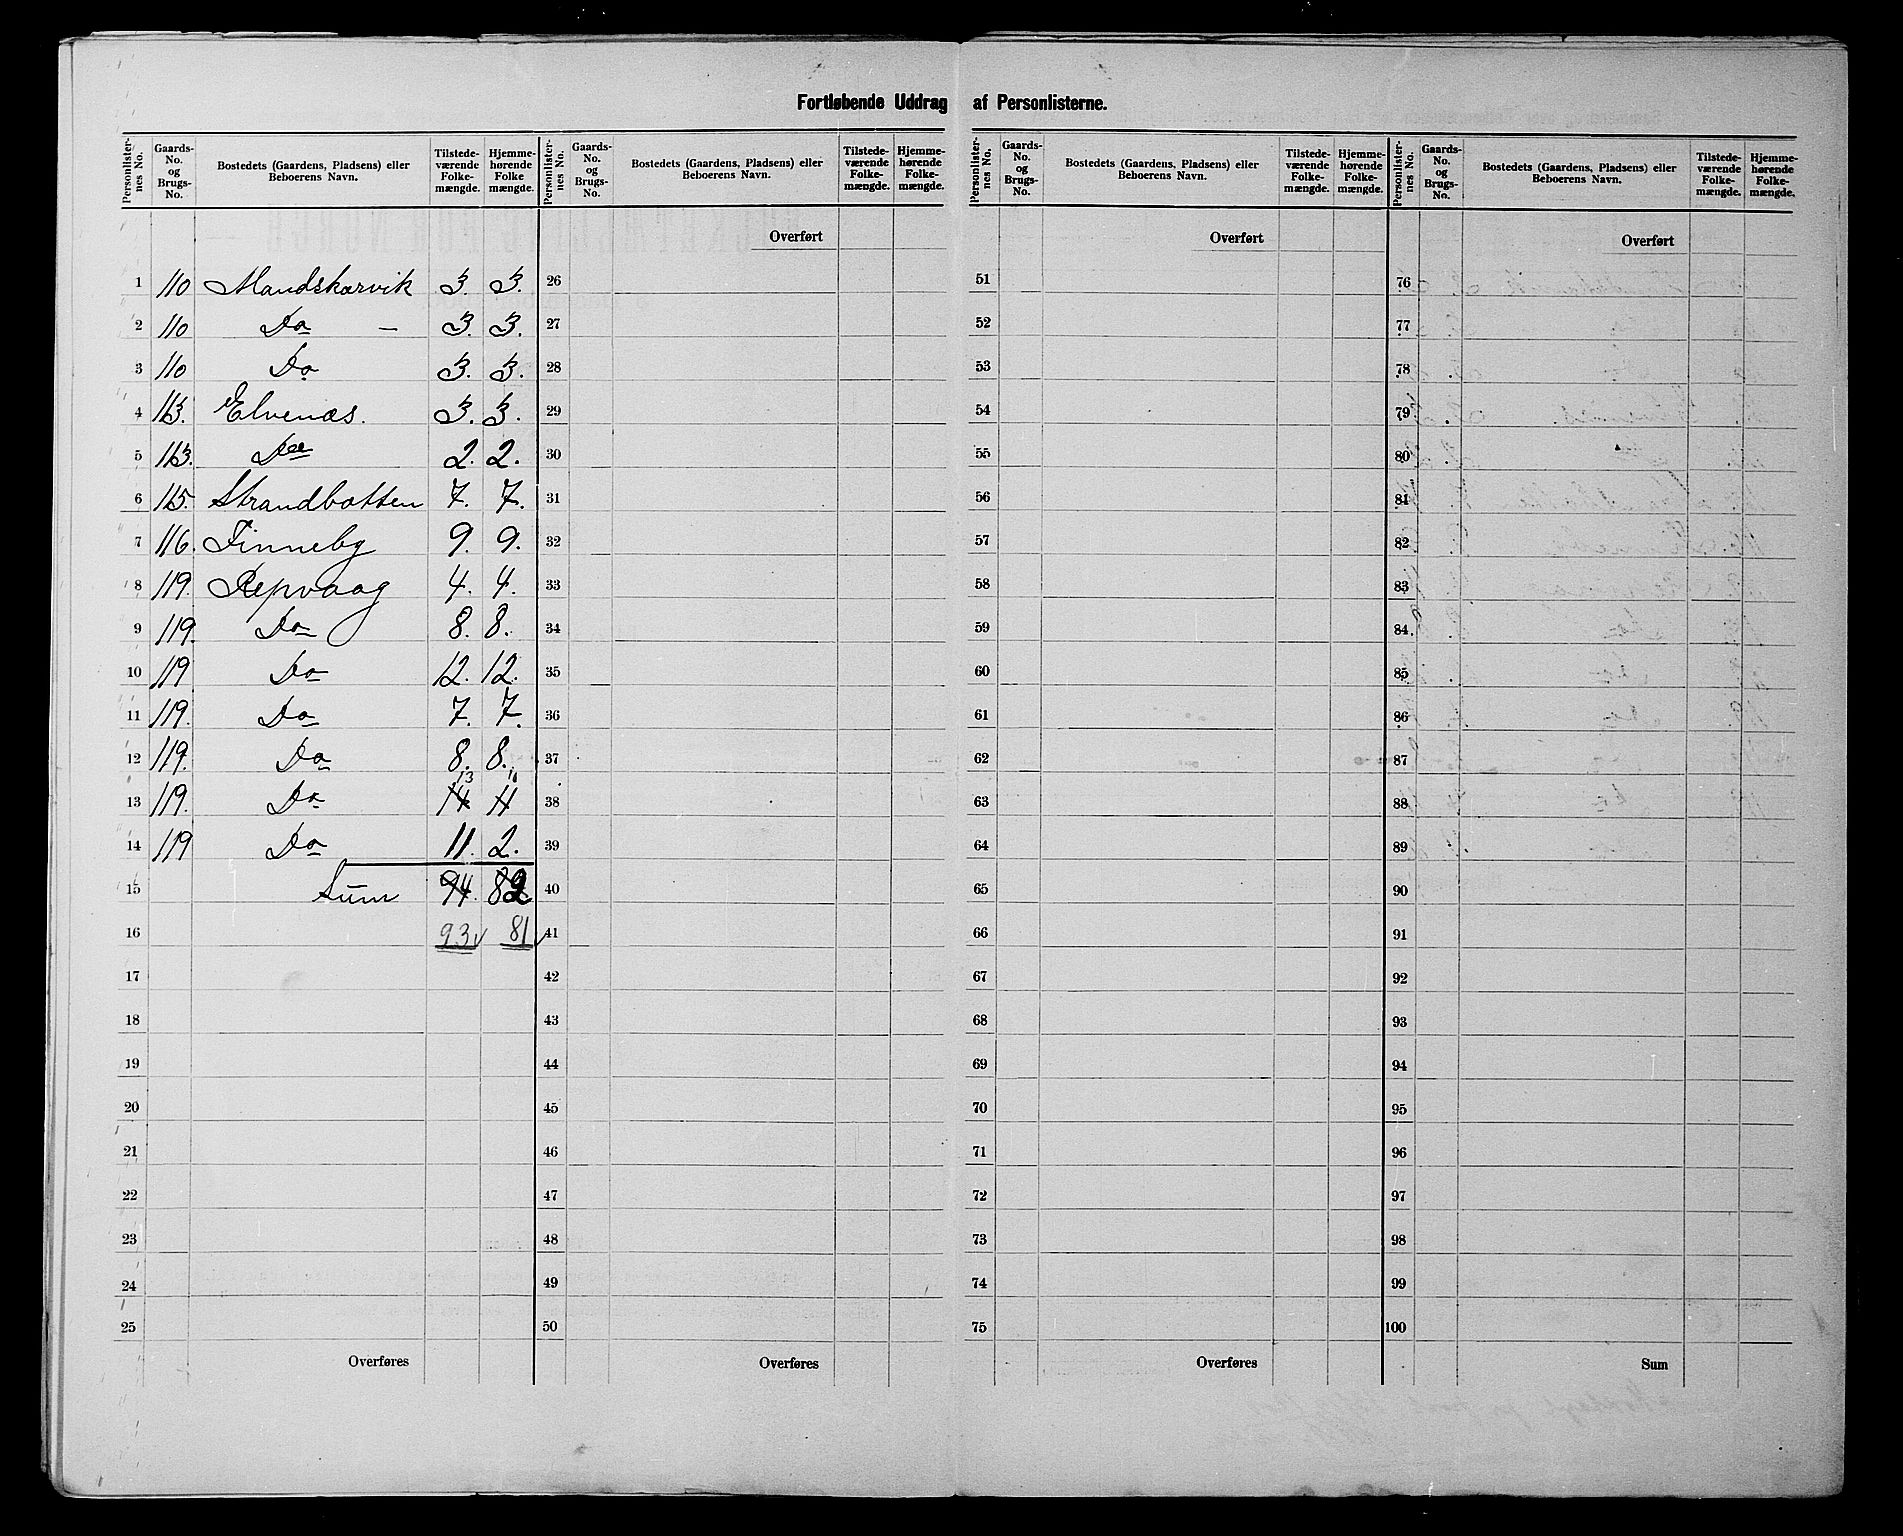 Fortløbende Uddrag af Personlisterne.
Personlister-nes No. Gaards-No. og Brugs-No. Bostedets (Gaardens, Pladsens) eller Beboerens Navn. Tilstede-værende Folke-mængde. Hjemme-hørende Folke mængde.
Personlister-nes No. Gaards-No. og Brugs-No. Bostedets (Gaardens, Pladsens) eller Beboerens Navn. Tilstede-værende Folke-mængde. Hjemme-hørende Folke-mængde.
Personlister-nes No. Gaards-No. og Brugs-No. Bostedets (Gaardens, Pladsens) eller Beboerens Navn. Tilstede-værende Folke-mængde. Hjemme-hørende Folke-mængde.
Personlister-nes No. Gaards-No. og Brugs-No. Bostedets (Gaardens, Pladsens) eller Beboerens Navn. Tilstede-værende Folke-mængde. Hjemme-hørende Folke-mængde.
Overført Overført Overført
1 110 Mandskarvik 3. 3. 26 51 76
2 110 Do — 3. 3. 27 52 77
3 110 Do 3. 3. 28 53 78
4 113. Elvenæs. 3. 3. 29 54 79
5 113. Do 2. 2. 30 55 80
6 115. Strandbotten 7. 7. 31 56 81
7 116. Finneby 9. 9. 32 57 82
8 119. Repvaag 4. 4. 33 58 83
9 119. Do 8. 8. 34 59 84
10 119 Do 12. 12. 35 60 85
11 119. Do 7. 7. 36 61 86
12 119. Do 8. 8. 37 62 87
13 119. Do 14 13 11 10 38 63 88
14 119 Do 11. 2. 39 64 89
15 Sum 94. 82 40 65 90
16 93 81 41 66 91
17 42 67 92
18 43 68 93
19 44 69 94
20 45 70 95
21 46 71 96
22 47 72 97
23 48 73 98
24 49 74 99
25 50 75 100
Overføres Overføres Overføres Sum